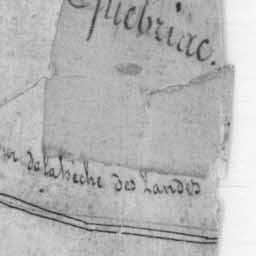 Quebriac.
de la bèche des Landes